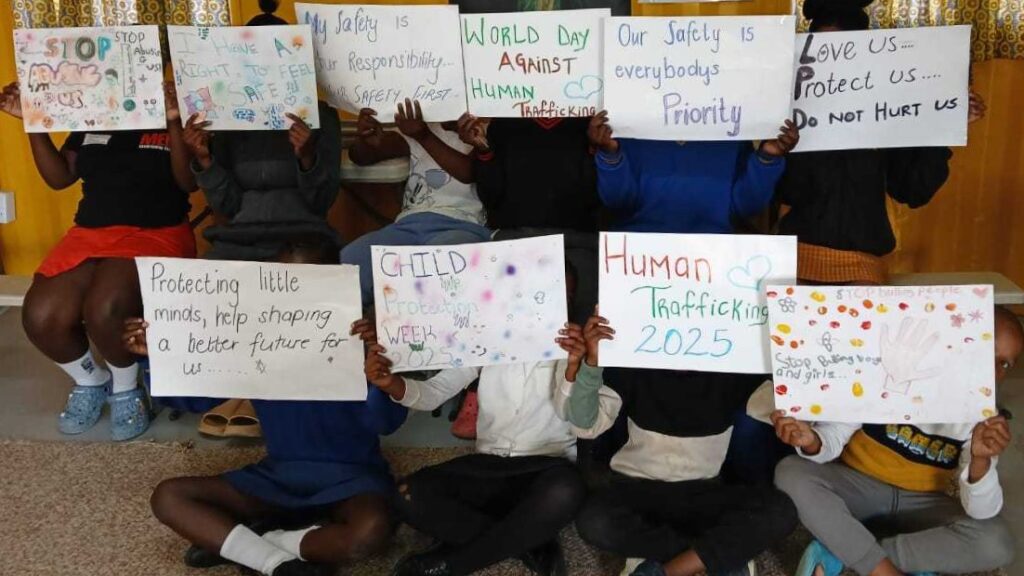 STOP
STOP
Abusing
US
I Have A
RIGHT TO FEEL
SAFE
My Safety is
Our Responsibility...
OUR SAFETY FIRST...
WORLD DAY
AGAINST
HUMAN
Trafficking
Our Safety is
everybodys
Priority
Love us....
Protect us....
Do NOT HURT us
Protecting little
minds, help shaping
a better future for
us......
CHILD
Protection
WEEK
2025
Human
Trafficking
2025
people
Stop Bulling boys
and girls...